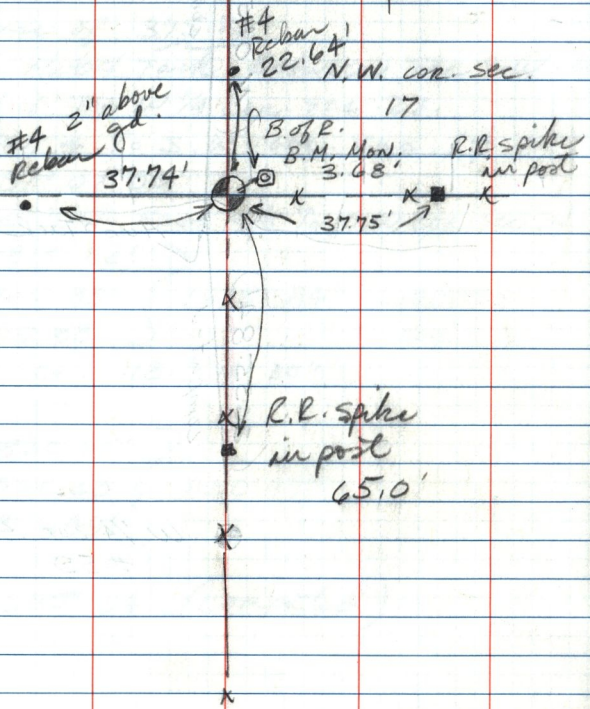 #4
Rebar
22.64'
N.W. cor. sec.
17
2" above
gd.
#4
Rebar
37.74'
B. of R.
B.M. Mon.
3.68'
R.R. spike
in post
37.75'
R.R. spike
in post
65.0'